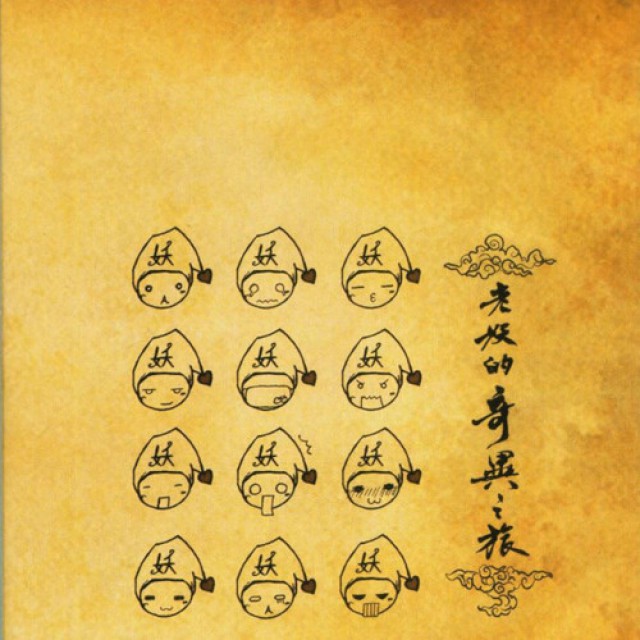 老妖的奇異之旅
妖 妖 妖
妖 妖 妖
妖 妖 妖
妖 妖 妖